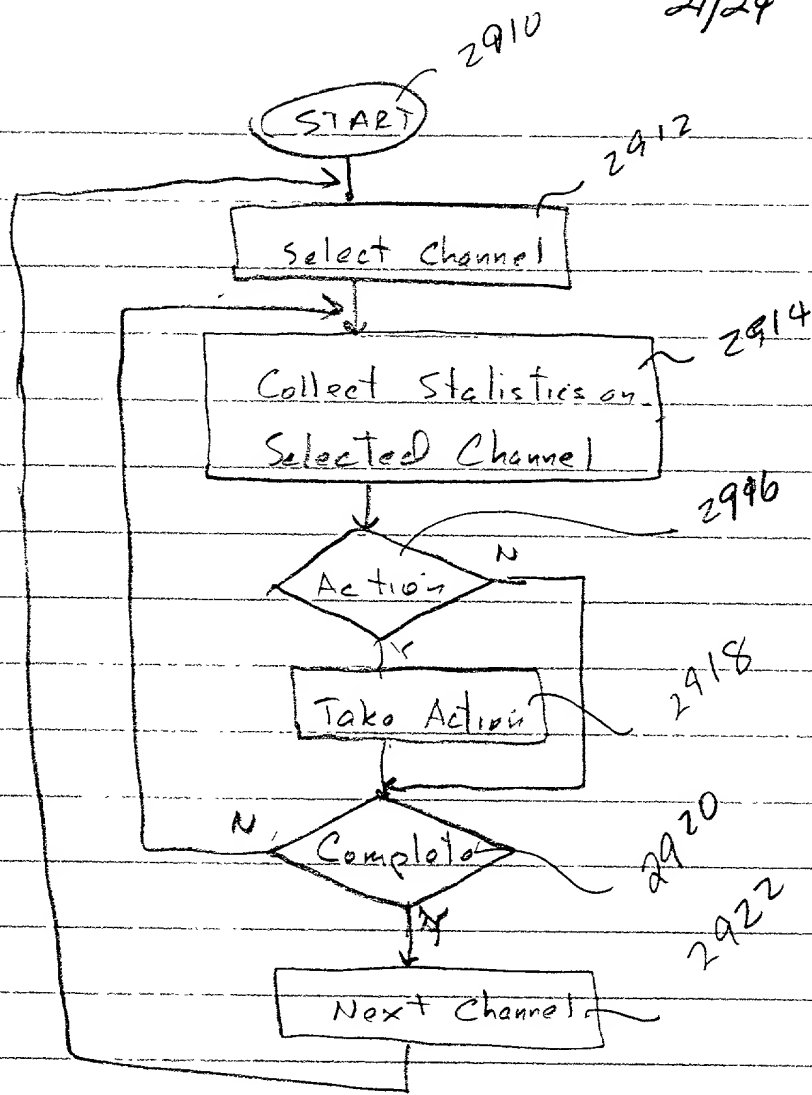 21/24
2910
START
2912
Select Channel
2914
Collect Statistics on
Selected Channel
2916
N
Action
Y
2918
Take Action
N
Complete
2920
Y
2922
Next Channel